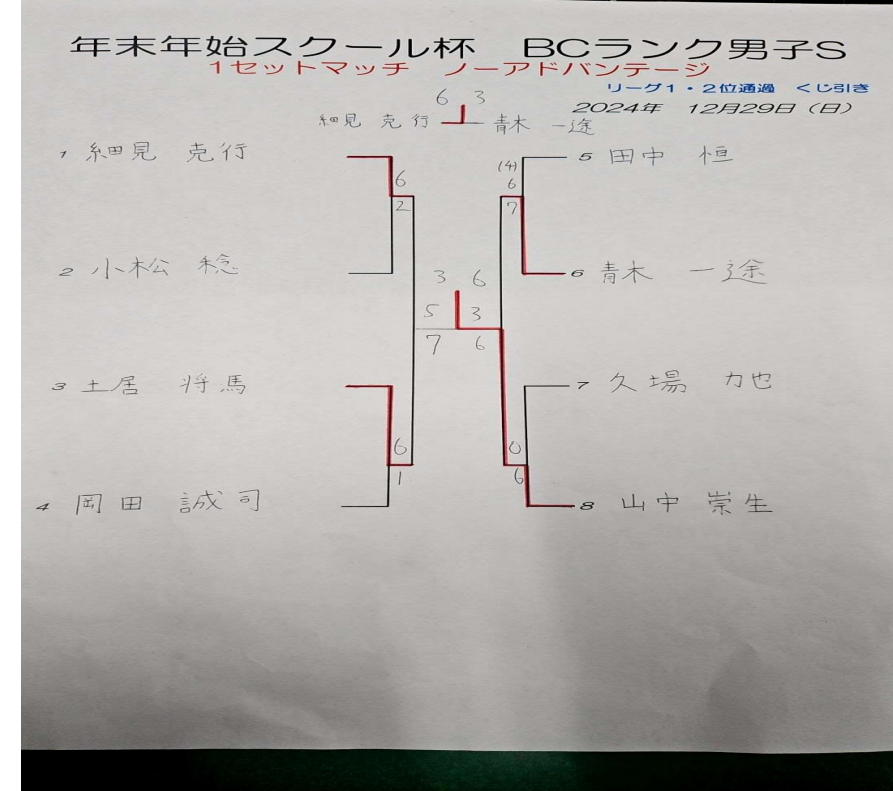 年末年始スクール杯 BCランク男子S
1セットマッチ ノーアドバンテージ
リーグ1・2位通過 くじ引き
2024年 12月29日（日）
6 3
細見 克行 青木 一途
1 細見 克行
6
2
2 小松 稔
(4)
6
7
5 田中 恒
6 青木 一途
3 6
5 3
7 6
3 土居 将馬
6
1
4 岡田 誠司
7 久場 力也
0
6
8 山中 崇生